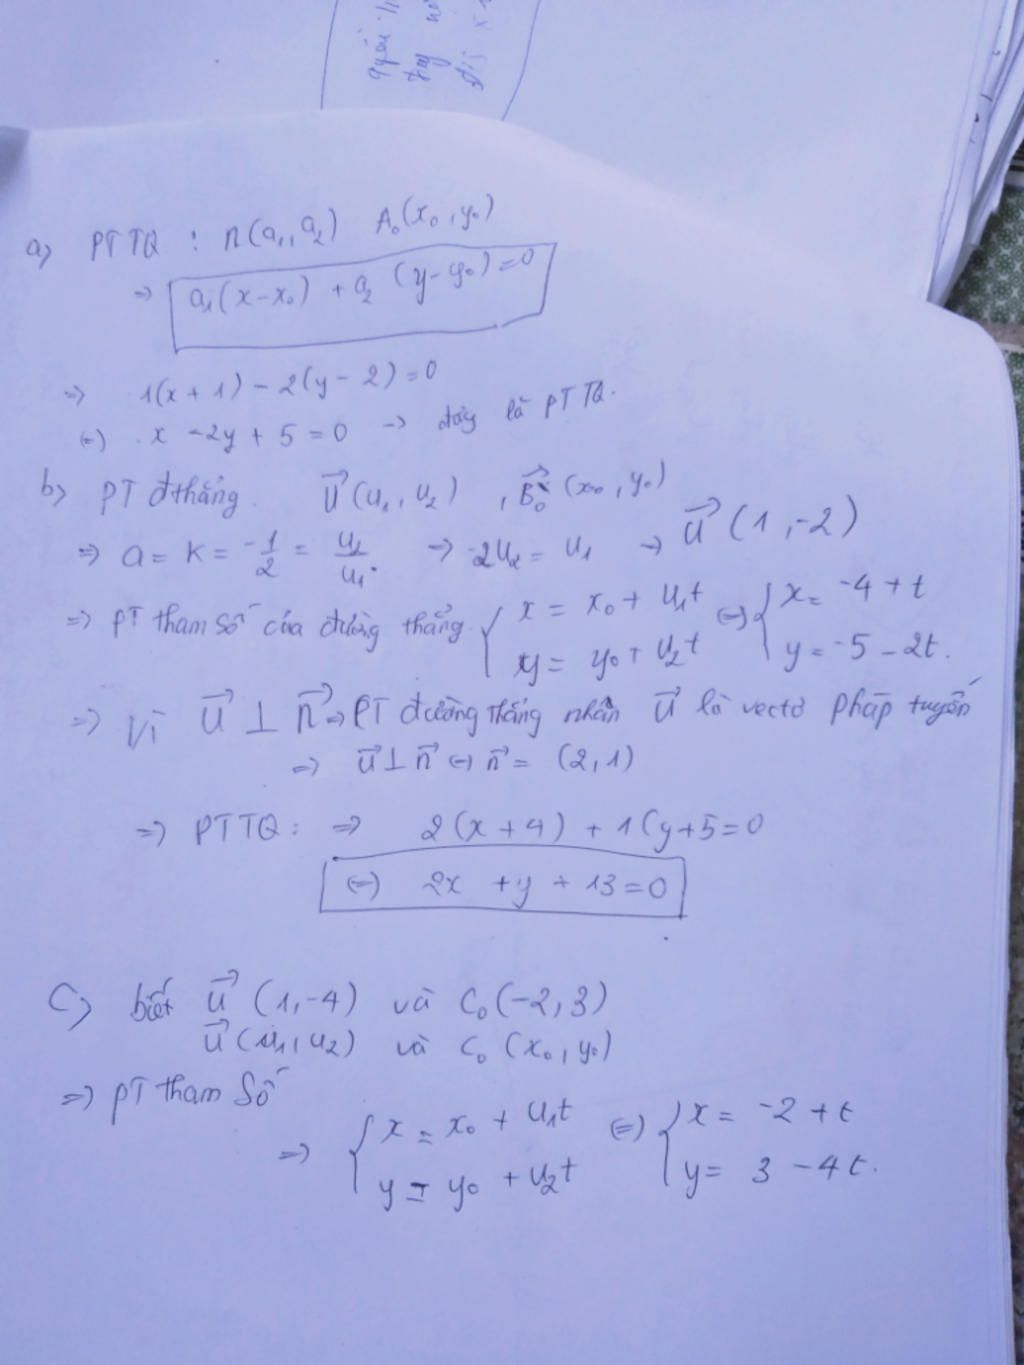 a) PTTQ : n(a₁, a₂) A₀(x₀, y₀)
=> a₁(x-x₀) + a₂ (y-y₀) = 0
=> 1(x + 1) - 2(y - 2) = 0
(=) x - 2y + 5 = 0 -> đây là PTTQ.
b) PT đthẳng. u⃗ (u₁, u₂) , B₀ (x₀, y₀)
=> a = k = -1/2 = u₂/u₁. -> -2u₂ = u₁ -> u⃗ (1, -2)
=> PT tham số của đường thẳng { x = x₀ + u₁t y = y₀ + u₂t (=) { x = -4 + t y = -5 - 2t.
=> Vì u⃗ ⊥ n⃗ => PT đường thẳng nhân u⃗ là vectơ pháp tuyến
=> u⃗ ⊥ n⃗ (=) n⃗ = (2, 1)
=> PTTQ: => 2(x + 4) + 1(y + 5 = 0
(=) 2x + y + 13 = 0
c) biết u⃗ (1, -4) và C₀ (-2, 3)
u⃗ (u₁, u₂) và C₀ (x₀, y₀)
=> PT tham số
=> { x = x₀ + u₁t y = y₀ + u₂t (=) { x = -2 + t y = 3 - 4t.